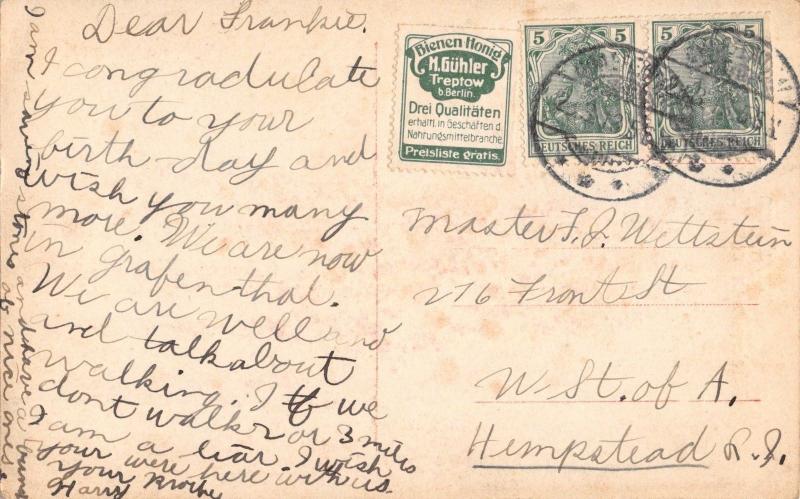 Dear Frankie.
I congradulate
you to your
birth day and
wish you many
more. We are now
in grafenthal.
We are well and
and talk about
walking. I If we
dont walk 2 or 3 miles
I am a liar. I wish
your were here with us.
your
Harry
I am saving stones and have a bunch
of nice ones.
Bienen Honig
H. Gühler
Treptow
b. Berlin.
Drei Qualitäten
erhältl. in Geschäften d.
Nahrungsmittelbranche.
Preisliste gratis.
5 5
DEUTSCHES REICH
5 5
DEUTSCHES REICH
Master F. J. Wettstein
276 Front St
U. St. of A.
Hempstead L. I.